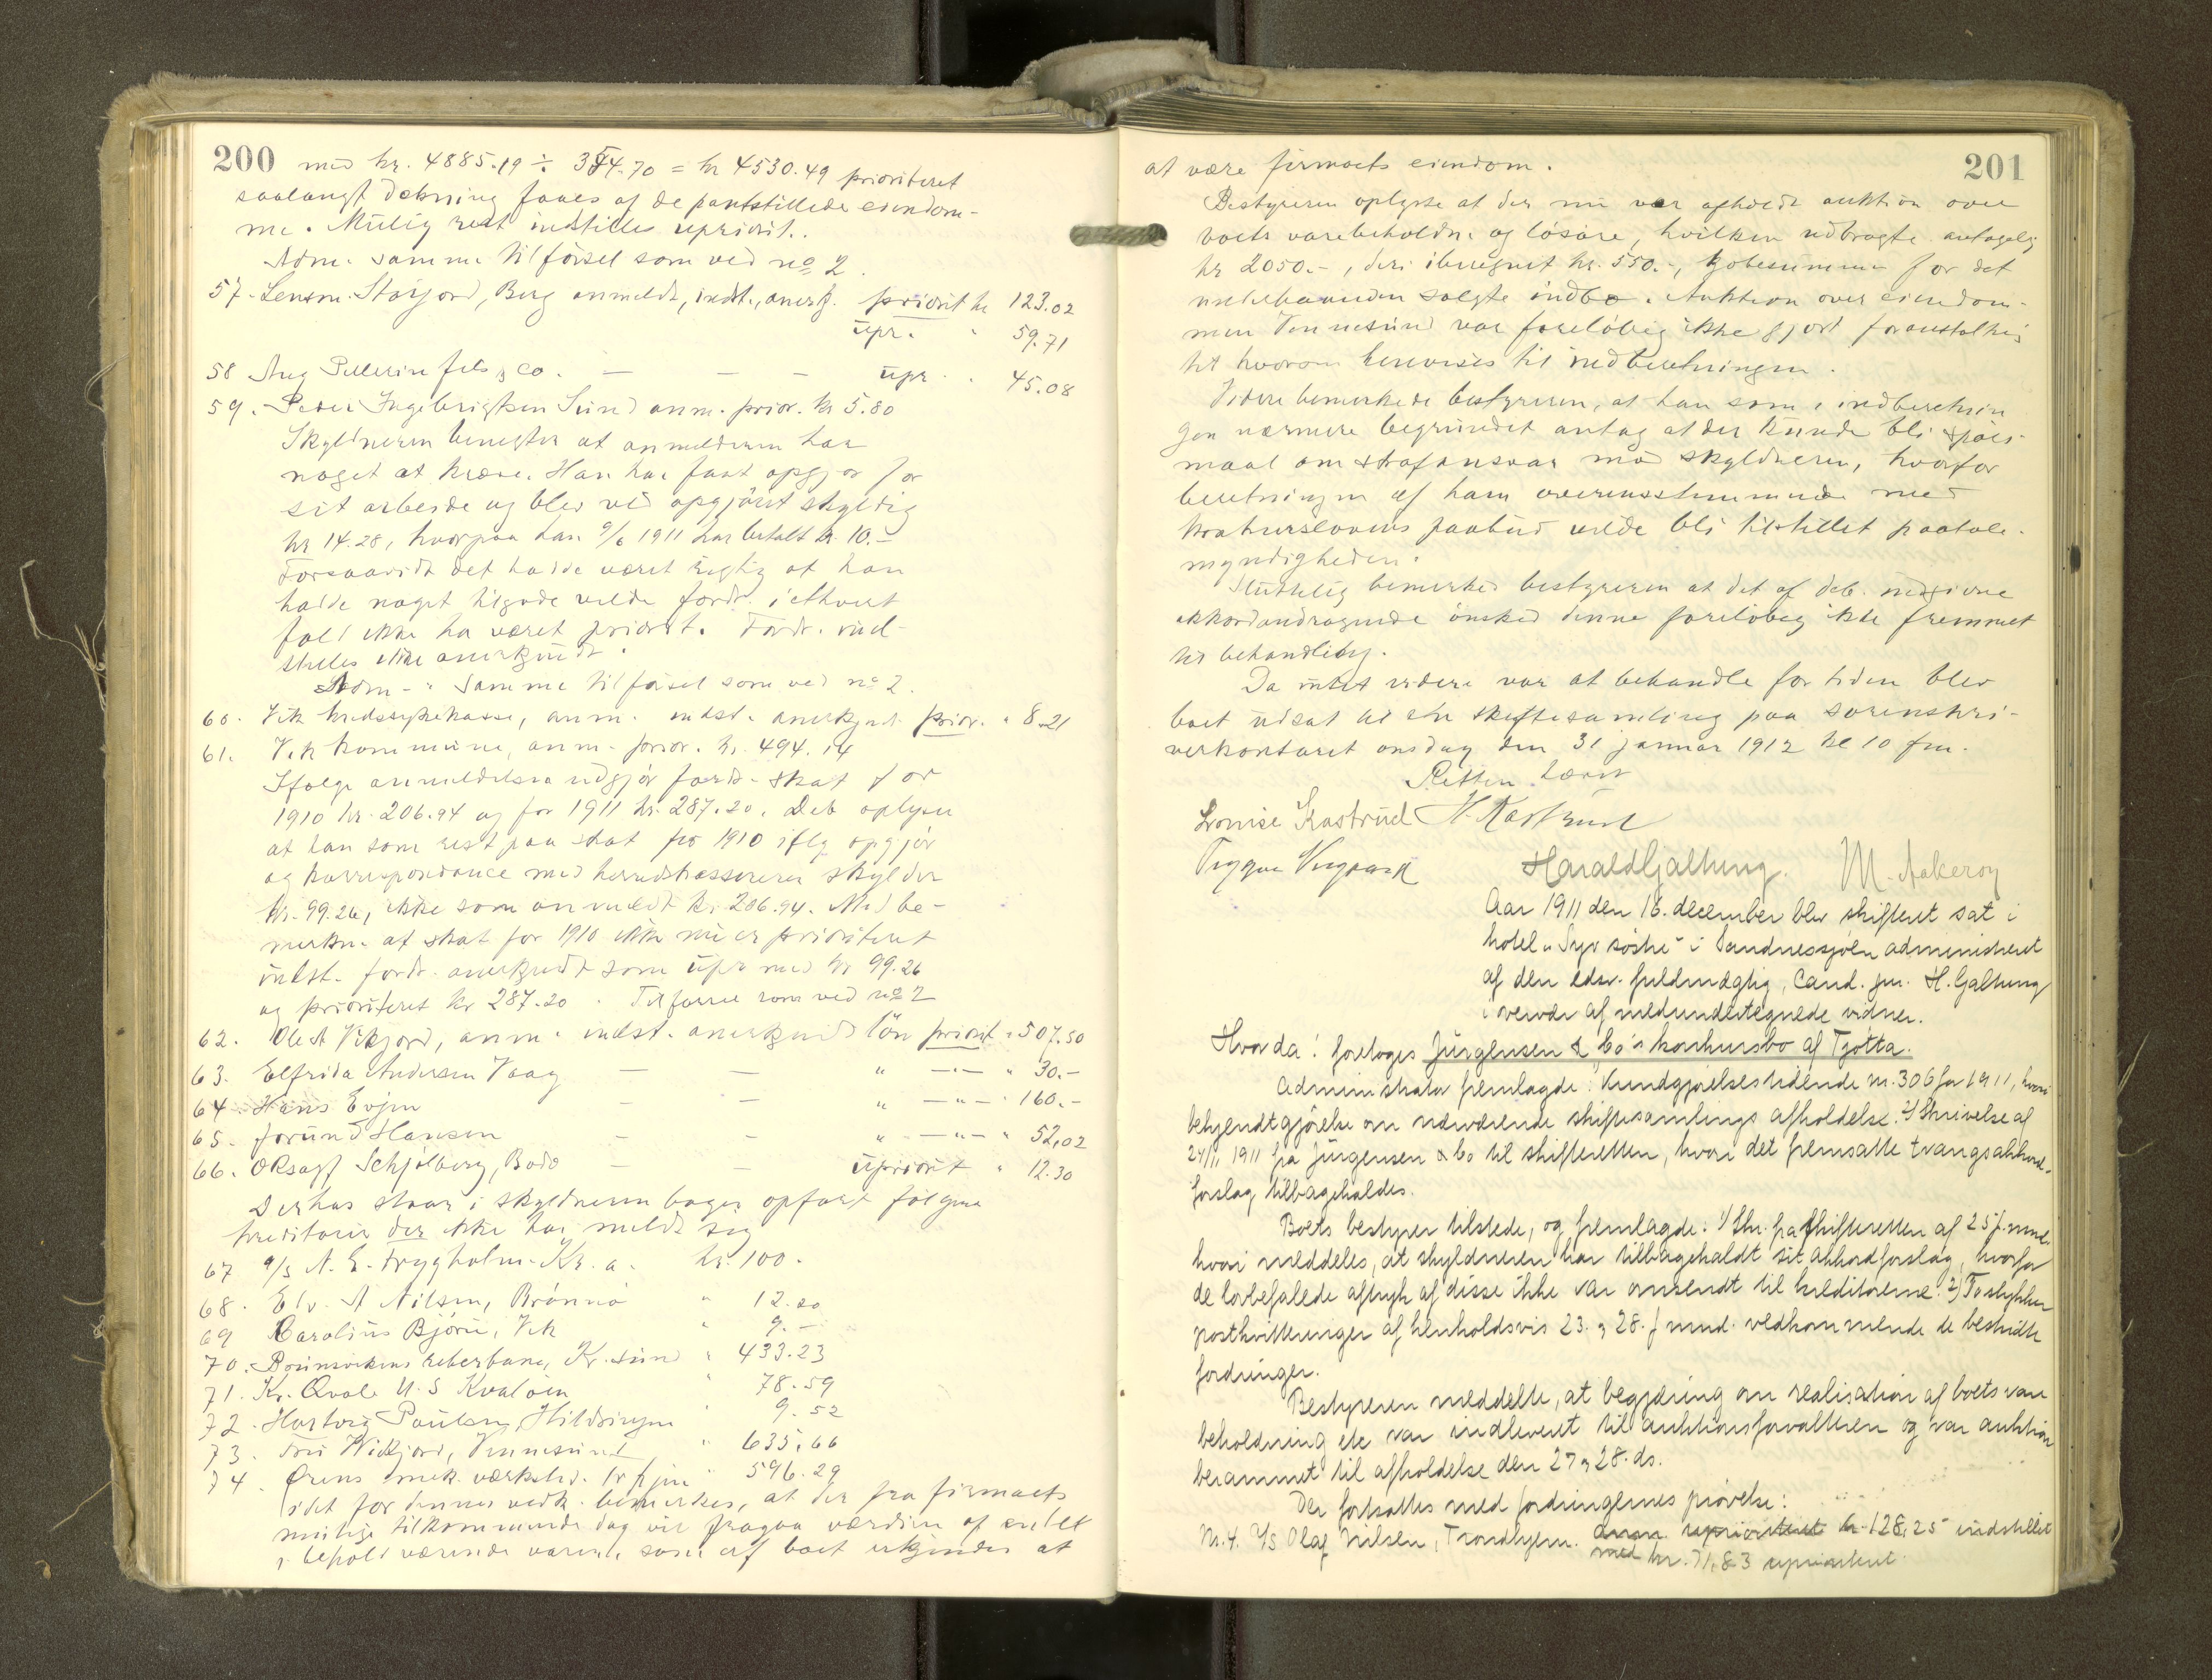 200 med kr. 4885.19 ÷ 354.70 = kr 4530.49 prioriteret
saalangt dækning faaes af de pantstillede eiendom-
me. Mulig rest indstilles upriorit..
Adm. samme tilförsel som ved no 2.
57. Lensm. Storjord, Berg anmeldt, indst., anerkj. priorit kr 123.02
upr. " 59.71
58 Aug Pellerin fils & Co. — — — upr. " 45.08
59. Peder Ingebrigtsen Sund anm. prior. kr 5.80
Skyldneren benegter at anmelderen har
noget at kræve. Han har faat opgjør for
sit arbeide og blev ved opgjöret skyldig
kr 14.28, hvorpaa han 9/6 1911 har betalt kr. 10.-
Forsaavidt det hadde været rigtig at han
hadde noget tilgode vilde fordr. i ethvert
fald ikke ha været priorit. Fordr. ind-
stilles ikke anerkjendt.
Adm. - " samme tilförsel som ved no 2.
60. Vik kredssykekasse, anm. indst. anerkjendt prior. " 8.21
61. Vik kommune, anm. prior. kr. 494.14
Ifølge anmeldelsen udgjør fordr. skat for
1910 kr. 206.94 og for 1911 kr. 287.20. Deb oplyser
at han som rest paa skat for 1910 iflg opgjör
og korrespondance med herredskassereren skylder
kr. 99.26, ikke som anmeldt kr. 206.94. Med be-
merkn. at skat for 1910 ikke nu er prioriteret
indst. fordr. anerkjendt som upr med kr 99.26
og prioriteret kr 287.20. Tilförsel som ved no 2
62. Ole A Vikjord, anm. indst. anerkjendt lön priorit " 507.50
63. Elfrida Andersen Vaag — — " —"— " 30.-
64. Hans Evjen — — " —"— " 160.-
65. Jorund Hansen — — " —"— " 52,02
66. O Rsagf Schjølberg, Bodø — — upriorit " 12.30
Derhos staar i skyldneren bøger opført følgende
kreditorer der ikke har meldt sig
67 A/S N. E. Frygholm Kr.a. kr. 100.
68. Elv. A Nilsen, Brönnö " 12.20
69 Carolius Björu, Vik " 9.-
70. Brunsvikens reberbane, Kr.sund " 433.23
71. Kr. Qvale U.S Kvalöen " 78.59
72. Hartvig Paulsen, Hildringen " 9.52
73. Fru Widkjord, Vennesund " 635,66
74. Ørens mek. værksted. Tr.hjem " 596.29
idet for dennes vedk. bemerkes, at der fra firmaets
mulige tilkommende dog vil fragaa værdien af endel
i behold værende varer, som af boet erkjendes at
at være firmaets eiendom. 201
Bestyreren oplyste at der nu var afholdt auktion over
boets varebeholdn. og lösöre, hvilken udbragte antagelig
kr 2050.-, deri iberegnet kr. 550.-, kjøbesummen for det
underhaanden solgte indbo. Auktion over eiendom-
men Vennesund var foreløbig ikke gjort foranstaltning
til hvorom henvises til indberetningen.
Videre bemerkede bestyreren, at han som i indberetnin
gen nærmere begrundet antog at der kunde bli spörs-
maal om strafansvar mod skyldneren, hvorfor
beretningen af ham overensstemmende med
konkurslovens paabud vilde bli tilstillet paatale-
myndigheden.
Sluttelig bemerked bestyreren at det af deb. indgivne
akkordandragende ønsked denne foreløbig ikke fremmet
til behandling.
Da intet videre var at behandle for tiden blev
boet udsat til skiftesamling paa sorenskri-
verkontoret onsdag den 31 januar 1912 kl 10 fm.
Retten hævet
Lovise Kastrud H. Kastrud
Haraldgaltung. M. Aakeroy
Aar 1911 den 16. december blev skifteret sat i
hotel "Syv søstre" i Sandnessjøen administreret
af den edsv. fuldmægtig, Cand. jur. H. Galtung
i nærvær af medundertegnede vidner.
Hvorda: foretoges Jürgensen & Co's konkursbo af Tjøtta.
Administrator fremlagde: Kundgjørelsestidende nr. 306 for 1911, hvori
bekjendtgjørelse om nærværende skiftesamlings afholdelse. 2) Skrivelse af
24/11 1911 fra Jürgensen & Co til skifteretten, hvori det fremsatte tvangsakkord-
forslag tilbagekaldes.
Boets bestyrer tilstede, og fremlagde: 1) Skr. fra skifteretten af 25 f. mnd.
hvori meddeles, at skyldneren har tilbagekaldt sit akkordforslag, hvorfor
de lovbefalede aftryk af disse ikke var omsendt til kreditorerne. 2) To stykker
postkvitteringer af henholdsvis 23. og 28. f mnd. vedkommende de bestridte
fordringer.
Bestyreren meddelte, at begjæring om realisation af boets vare
beholdning etc var indleveret til auktionsforvalteren og var auktion
berammet til afholdelse den 27 og 28. ds.
Der fortsattes med fordringernes prøvelse:
Nr. 4. A/S Olaf Nilsen, Trondhjem. anm. uprioriteret kr. 128,25 indstillet
med kr. 71,83 uprioriteret.